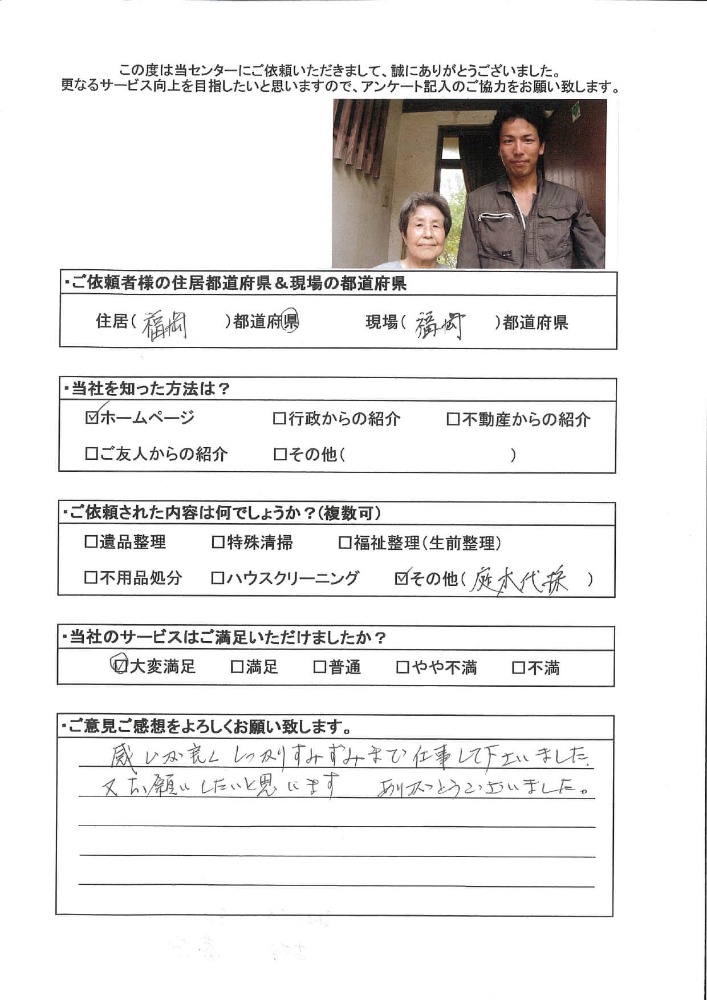 この度は当センターにご依頼いただきまして、誠にありがとうございました。
更なるサービス向上を目指したいと思いますので、アンケート記入のご協力をお願い致します。
・ご依頼者様の住居都道府県＆現場の都道府県
住居( 福岡 )都道府県 現場( 福岡 )都道府県
・当社を知った方法は？
☑ホームページ □行政からの紹介 □不動産からの紹介
□ご友人からの紹介 □その他( )
・ご依頼された内容は何でしょうか？(複数可)
□遺品整理 □特殊清掃 □福祉整理(生前整理)
□不用品処分 □ハウスクリーニング ☑その他( 庭木代採 )
・当社のサービスはご満足いただけましたか？
☑大変満足 □満足 □普通 □やや不満 □不満
・ご意見ご感想をよろしくお願い致します。
感じが良く しっかりすみずみまで 仕事して下さいました。
又お願いしたいと思います ありがとうございました。